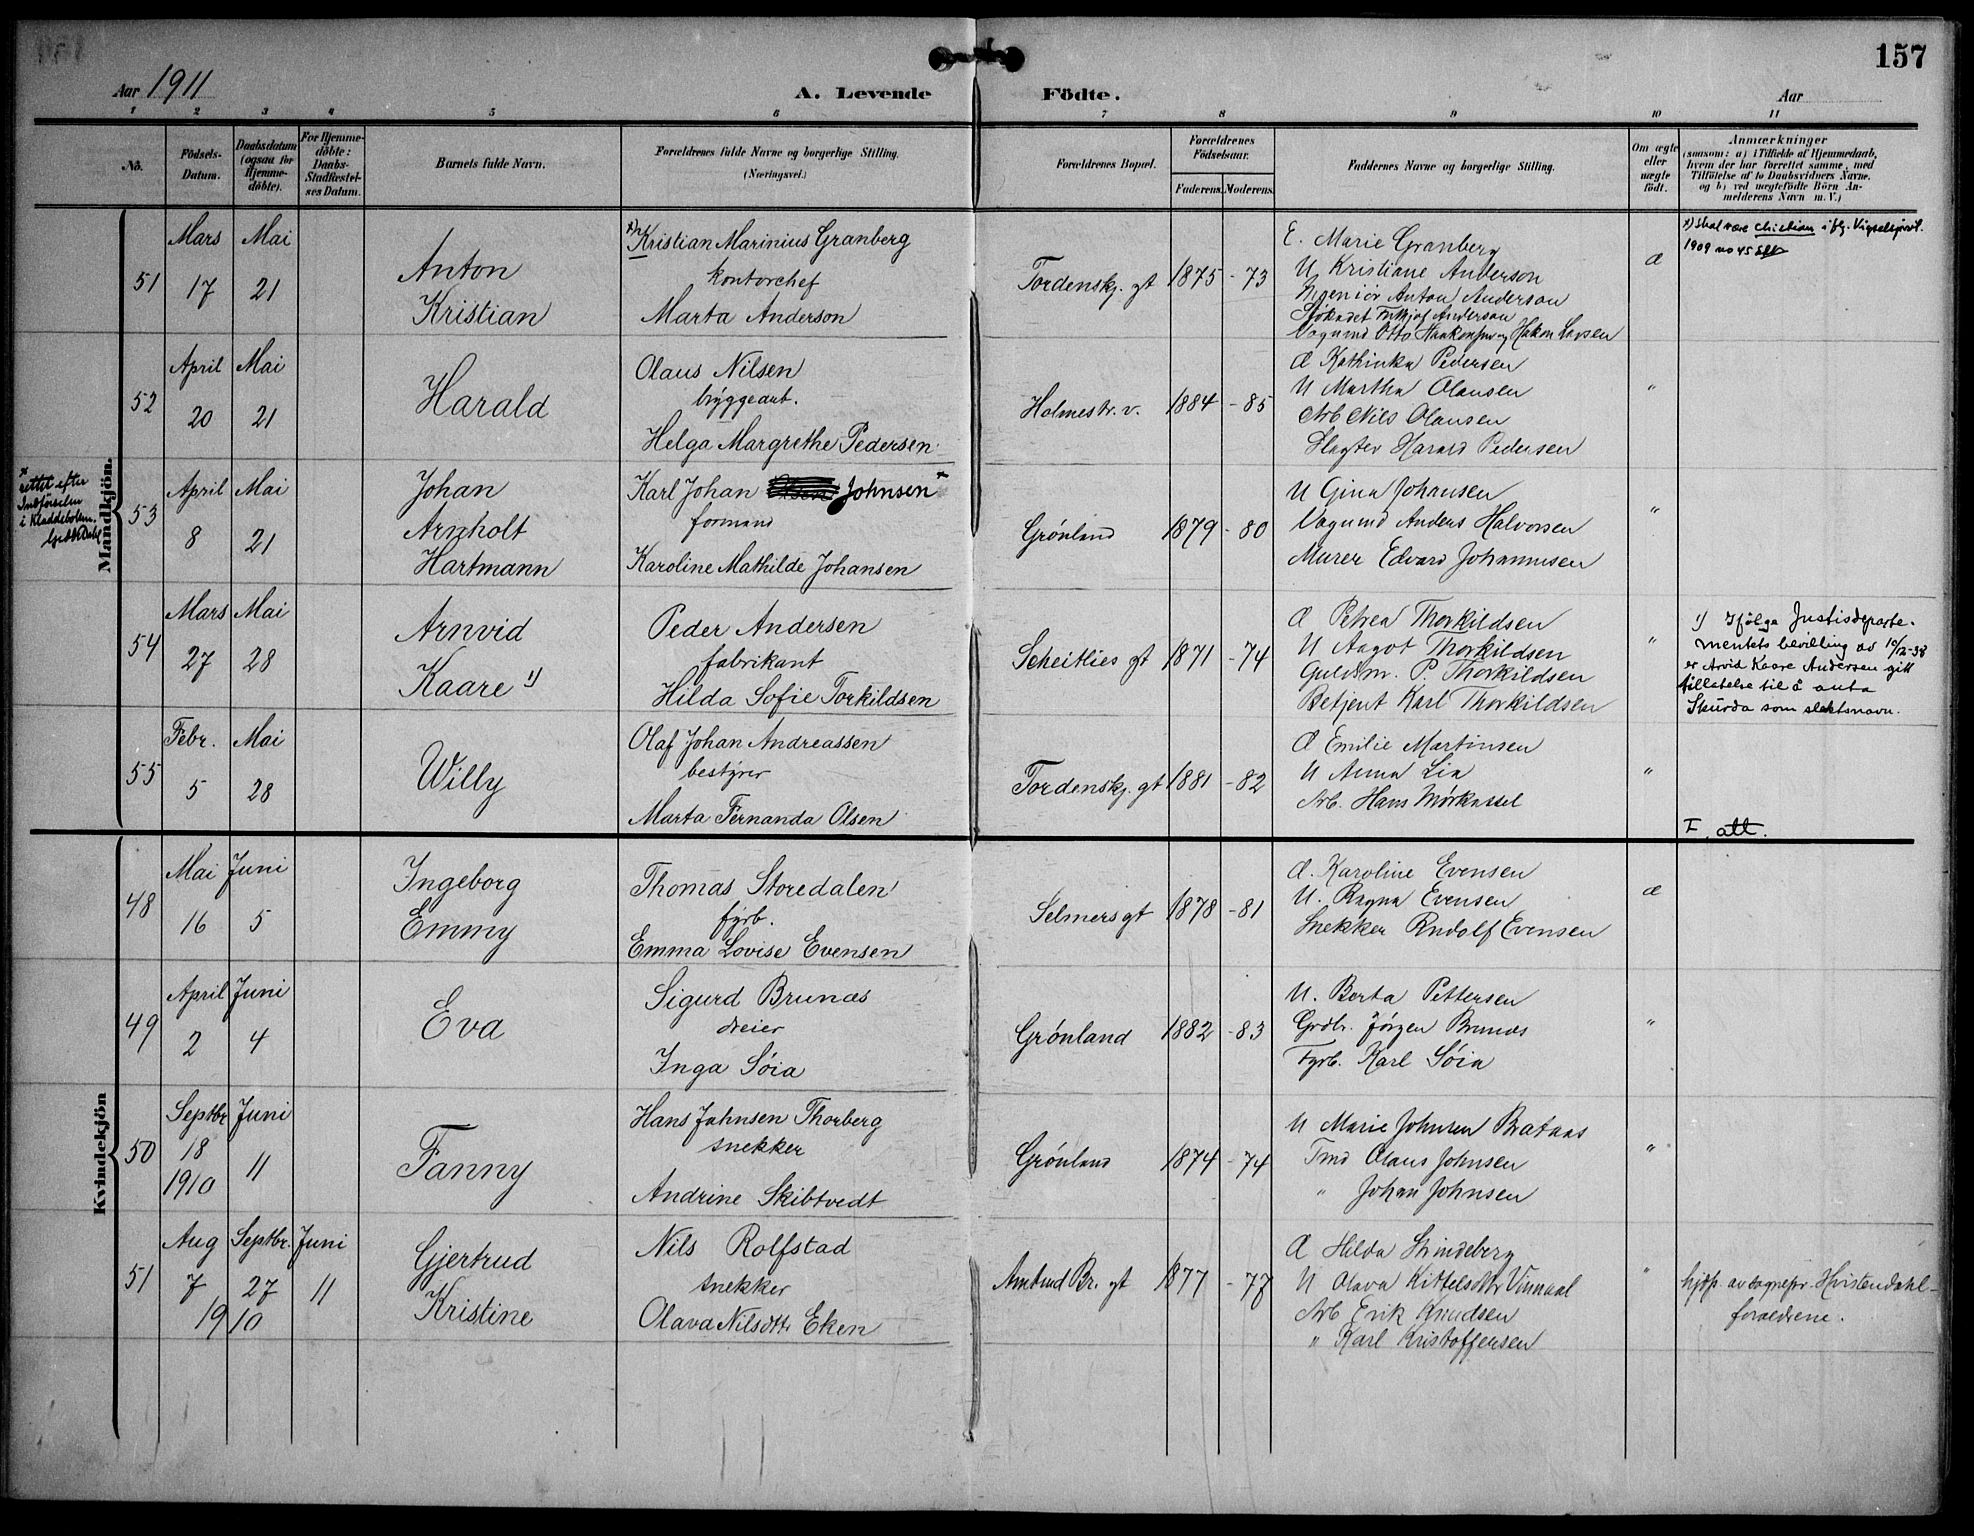 157
Aar 1911
A. Levende Födte.
Aar
1 2 3 4 5 6 7 8 9 10 11
No.
Födsels-Datum.
Daabsdatum (ogsaa for Hjemme-döbte).
For Hjemme-döbte: Daabs-Stadfæstel-ses Datum.
Barnets fulde Navn.
Forældrenes fulde Navne og borgerlige Stilling.
(Næringsvei.)
Forældrenes Bopæl.
Forældrenes Födselsaar.
Faderens. Moderens.
Faddernes Navne og borgerlige Stilling.
Om ægte eller uægte födt.
Anmærkninger
(saasom: a) i Tilfælde af Hjemmedaab,
hvem der har forrettet samme, med
Tilföielse af to Daabsvidners Navne,
og b) ved uægtefödte Börn An-
melderens Navn m. V.)
Mandkjön.
51
Mars 17
Mai 21
Anton
Kristian
Kristian Marinius Granberg
kontorchef
Marta Anderson
Tordenskj. gt
1875 - 73
E. Marie Granberg
U Kristiane Anderson
Ingeniör Anton Anderson
Sjökadet Fritjof Anderson
Vognmd Otto Haakonsen og Hakon Larsen
æ
x) skal være Christian ifg. Vigselsprot.
1909 no 45
52
April 20
Mai 21
Harald
Olaus Nilsen
bryggearb.
Helga Margrethe Pedersen
Holmestr. v.
1884 - 85
Æ Kathinka Pedersen
U Martha Olausen
Arb Nils Olausen
Slagter Harald Pedersen
"
x
rettet efter
Indförselen
i Kladdeboken.
53
April 8
Mai 21
Johan
Arnholt
Hartmann
Karl Johan Johnsen x
formand
Karoline Mathilde Johansen
Grönland
1879 - 80
U Gina Johansen
Vognmd Anders Halvorsen
Murer Edvard Johannesen
"
54
Mars 27
Mai 28
Arnvid
Kaare 1)
Peder Andersen
fabrikant
Hilda Sofie Torkildsen
Scheitlies gt
1871 - 74
Æ Petrea Thorkildsen
U Aagot Thorkildsen
Guldsm. P. Thorkildsen
Betjent Karl Thorkildsen
"
1) Ifölge Justisdeparte-
mentets bevilling av 10/12-38
er Arvid Kaare Andersen gitt
tillatelse til å anta
Skurda som slektsnavn.
55
Febr. 5
Mai 28
Willy
Olaf Johan Andreassen
bestyrer
Marta Fernanda Olsen
Tordenskj. gt
1881 - 82
Æ Emilie Martinsen
U Anna Lia
Arb. Hans Mörkassel
"
I. att.
Kvindekjön
48
Mai 16
Juni 5
Ingeborg
Emmy
Thomas Storedalen
fyrb.
Emma Lovise Evensen
Selmers gt
1878 - 81
Æ. Karoline Evensen
U. Ragna Evensen
Snekker Rudolf Evensen
æ
49
April 2
Juni 4
Eva
Sigurd Brunæs
dreier
Inga Söia
Grönland
1882 - 83
U. Berta Pettersen
Grdbr. Jörgen Brunæs
Fyrb. Karl Söia
"
50
Septbr 18 1910
Juni 11
Fanny
Hans Johnsen Thorberg
snekker
Andrine Skibtvedt
Grönland
1874 - 74
U Marie Johnsen Brataas
Tmd Olaus Johnsen
" Johan Johnsen
"
51
Aug 7
Septbr. 27
1910
Juni 11
Gjertrud
Kristine
Nils Rolfstad
snekker
Olava Nilsdttr Eken
Amtmd Br. gt
1877 - 77
Æ Hilda Strindeberg
U Olava Kittelsdttr Vinnaal
Arb Erik Knudsen
" Karl Kristoffersen
"
hjdp. av sognepr. Hvistendahl-
forældrene.